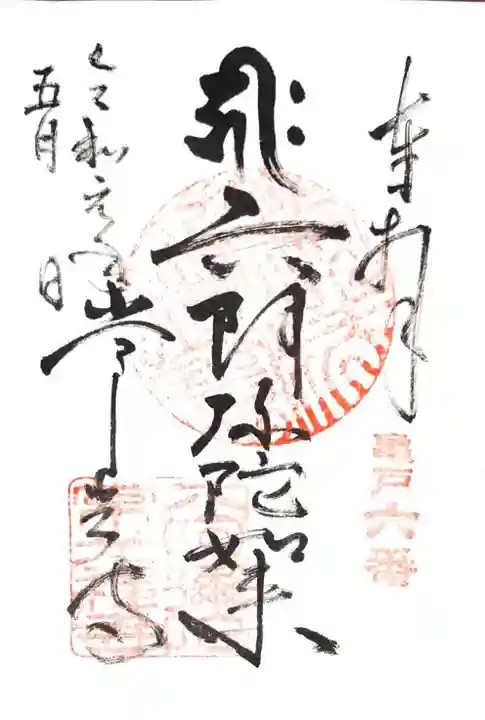 奉拝
龜戸六番
ह्रीः
六阿弥陀如来
令和元年
五月 日
常光寺